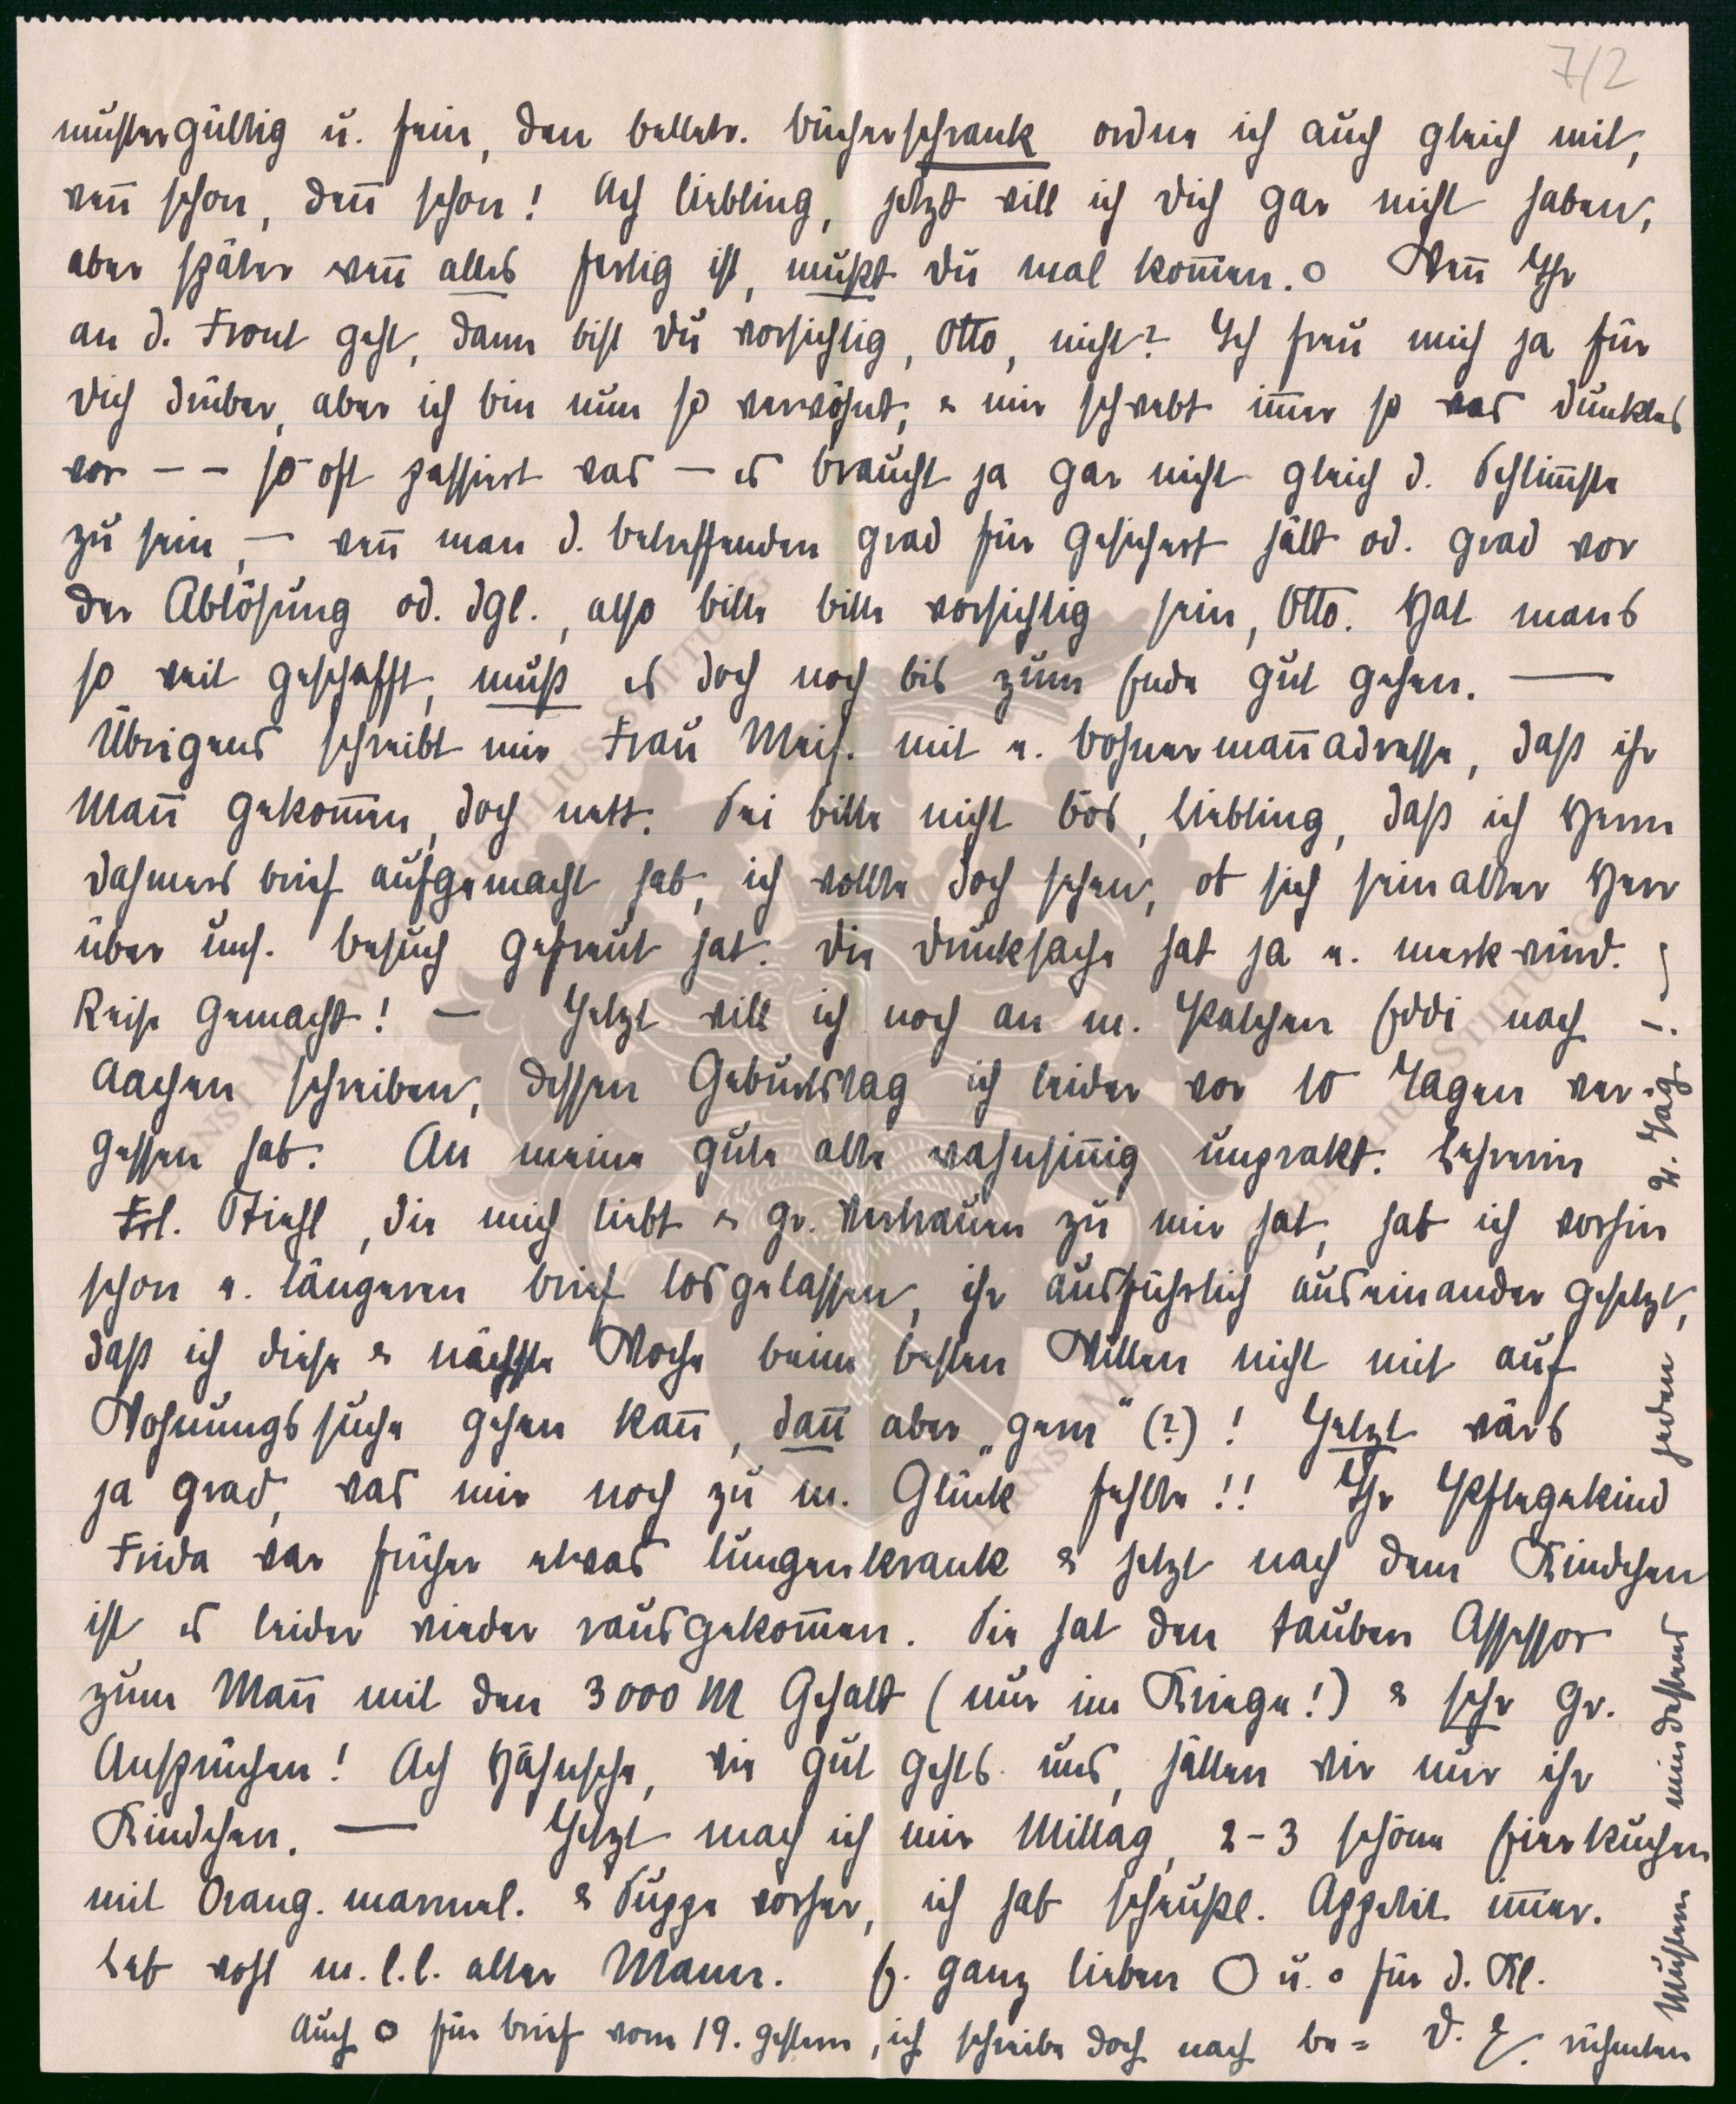 7/2
mustergültig u. fein, den belletr. Bücherschrank ordne ich auch gleich mit,
wen̄ schon, den̄ schon! Ach Liebling, jetzt will ich Dich gar nicht haben,
aber später wen̄ alles fertig ist, mußt Du mal kom̄en. o Wen̄ Ihr
an d. Front geht, dann bist Du vorsichtig, Otto, nicht? Ich freu mich ja für
Dich drüber, aber ich bin nun so verwöhnt, & mir schwebt im̄er so was Dunkles
vor – – so oft passiert was – es braucht ja gar nicht gleich d. Schlim̄ste
zu sein, – wen̄ man d. Betreffenden grad für gesichert hält od. grad vor
der Ablösung od. dgl., also bitte bitte vorsichtig sein, Otto. Hat mans
so weit geschafft, muß es doch noch bis zum Ende gut gehen. —
Übrigens schreibt mir Frau Meis. mit e. Bohnerman̄adresse, daß ihr
Man̄ gekom̄en, doch nett. Sei bitte nicht bös, Liebling, daß ich Herrn
Dahmers Brief aufgemacht hab, ich wollte doch sehen, ob sich sein alter Herr
über uns. Besuch gefreut hat. Die Drucksache hat ja e. merkwürd.
Reise gemacht! – Jetzt will ich noch an m. Patchen Eddi nach
Aachen schreiben, dessen Geburtstag ich leider vor 10 Tagen ver-
gessen hab. An meine gute alte wahnsin̄ig unprakt. Lehrerin
Frl. Stiehl, die mich liebt & gr. Vertrauen zu mir hat, hab ich vorhin
schon e. längeren Brief losgelassen, ihr ausführlich auseinander gesetzt,
daß ich diese & nächste Woche beim besten Willen nicht mit auf
Wohnungssuche gehen kan̄, dan̄ aber „gern" (?)! Jetzt wärs
ja grad, was mir noch zu m. Glück fehlte!! Ihr Pflegekind
Frida war früher etwas lungenkrank & jetzt nach dem Kindchen
ist es leider wieder rausgekom̄en. Sie hat den tauben Assessor
zum Man̄ mit den 3000 M Gehalt (nur im Kriege!) & sehr gr.
Ansprüchen! Ach Hähnsche, wie gut gehts uns, hätten wir nur ihr
Kindchen. — Jetzt mach ich mir Mittag, 2-3 schöne Eierkuchen
mit Orang. marmel. & Suppe vorher, ich hab scheußl. Appetit im̄er.
Leb wohl m. l. l. alter Mann. E. ganz lieben O u. o für d. Kl.
Auch o für Brief vom 19. gestern, ich schreibe doch nach be= D. E. rühmten
Mustern mindestens jeden 2. Tag!